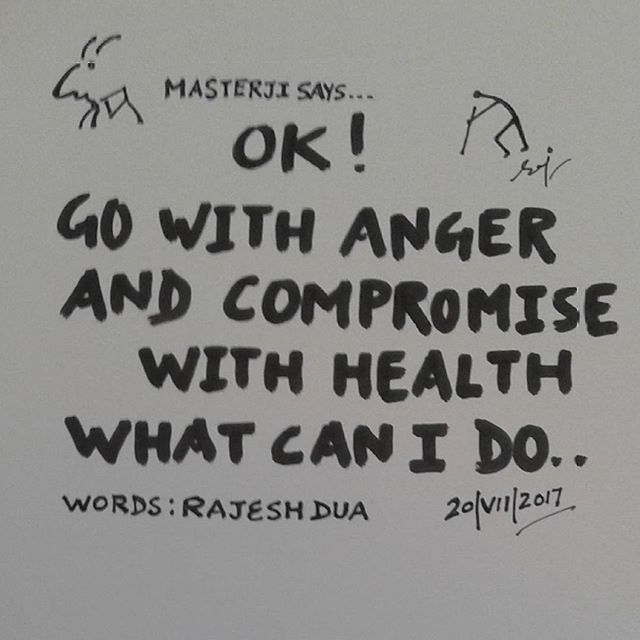 MASTERJI SAYS...
OK!
GO WITH ANGER
AND COMPROMISE
WITH HEALTH
WHAT CAN I DO..
WORDS: RAJESH DUA
20/VII/2017